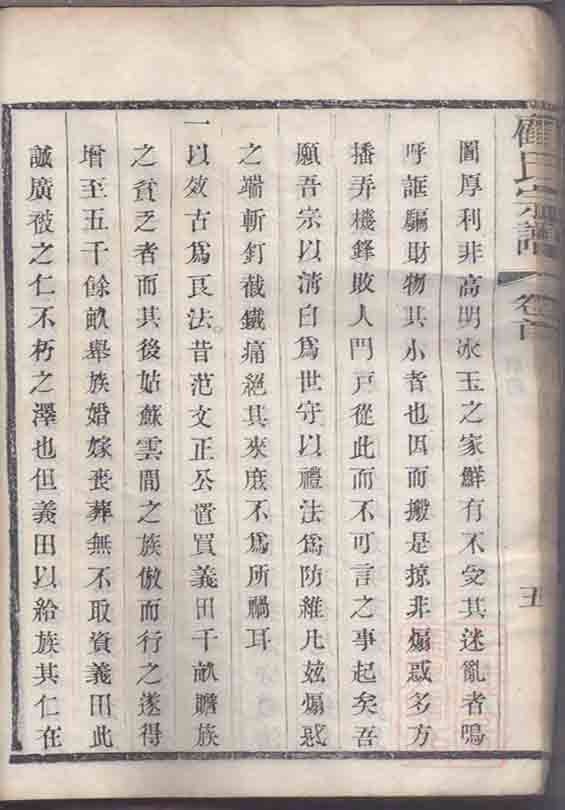 氏宗譜 卷首 五
圖厚利非高明冰玉之家鮮有不受其迷亂者嗚
呼誆騙財物其小者也因而搬是掠非煽惑多方
播弄機鋒敗人門戸從此而不可言之事起矣吾
願吾宗以淸白爲世守以禮法爲防維凡玆煽惑
之端斬釘截鐵痛絕其來庶不爲所禍耳
一以效古爲良法昔范文正公置買義田千畝贍族
之貧乏者而其後姑蘇雲間之族倣而行之遂得
增至五千餘畝舉族婚嫁喪葬無不取資義田此
誠廣被之仁不朽之澤也但義田以給族其仁在